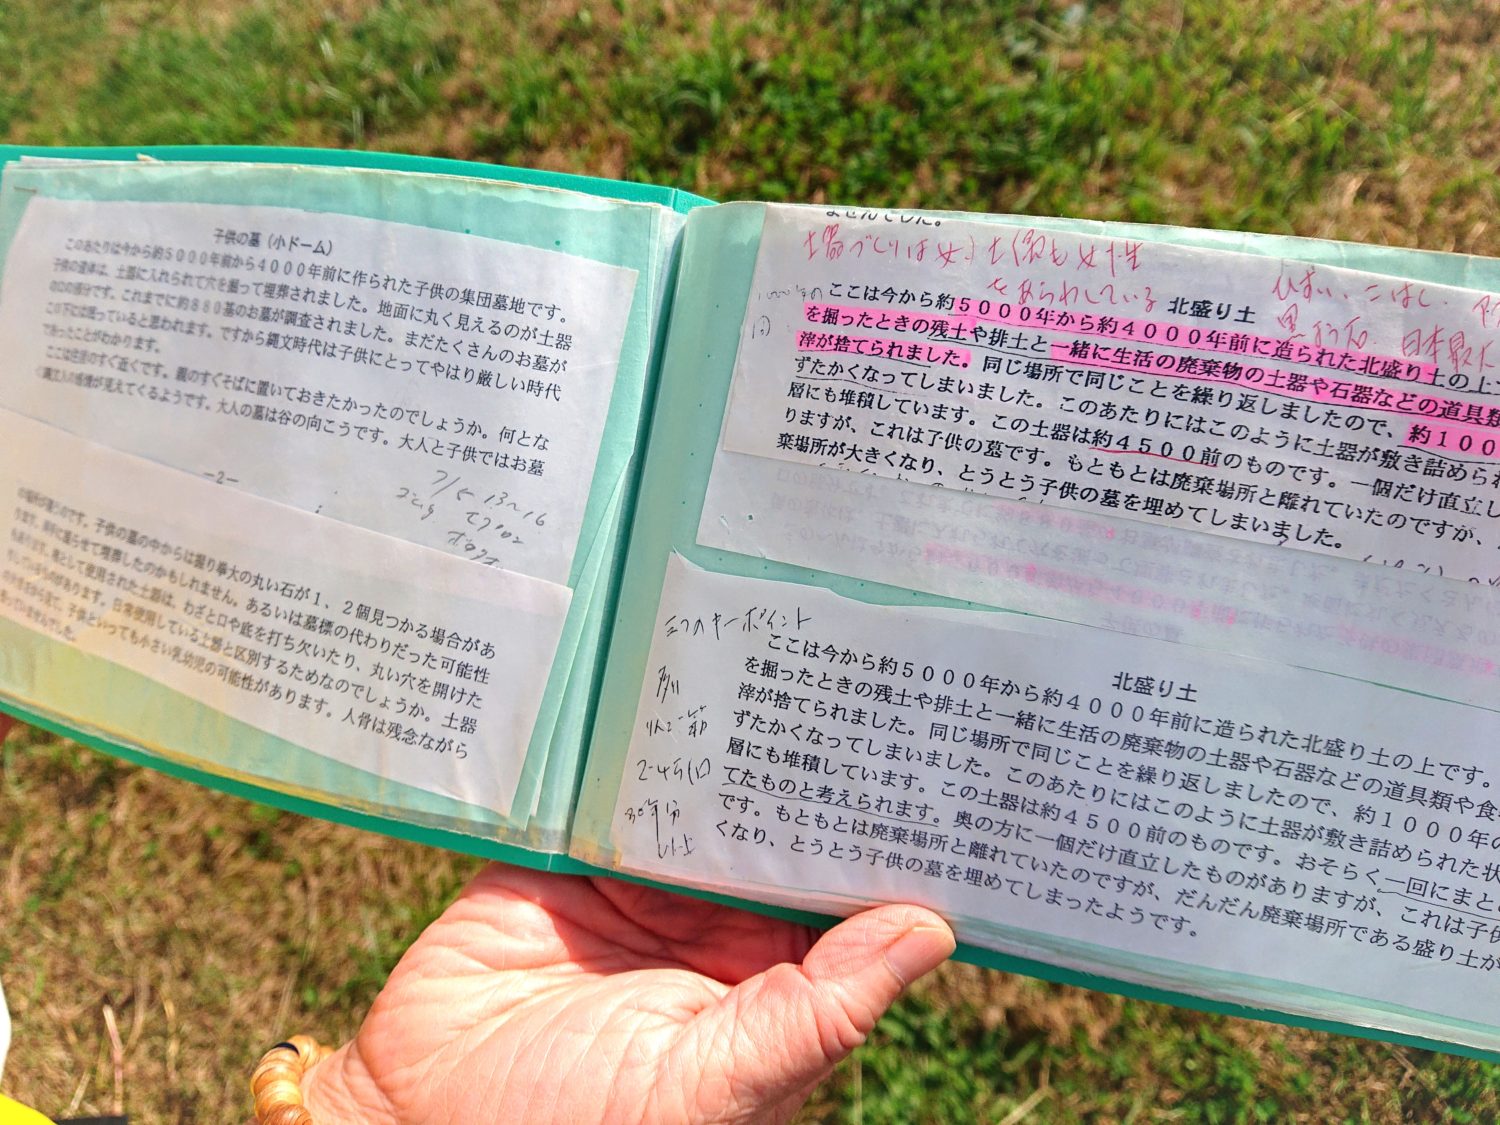 子供の墓（小ドーム）
このあたりは今から約５０００年前から４０００年前に作られた子供の集団墓地です。
子供の遺体は、土器に入れられて穴を掘って埋葬されました。地面に丸く見えるのが土器
の口の部分です。これまでに約８８０基のお墓が調査されました。まだたくさんのお墓が
この下には眠っていると思われます。ですから縄文時代は子供にとってやはり厳しい時代
であったことがわかります。
ここは住居のすぐ近くです。親のすぐそばに置いておきたかったのでしょうか。何とな
く縄文人の感情が見えてくるようです。大人の墓は谷の向こうです。大人と子供ではお墓
－２－
7/5 13～16
の場所が違うのです。子供の墓の中からは握り拳大の丸い石が１、２個見つかる場合があ
ります。
に埋葬したのかもしれません。あるいは墓標の代わりだった可能性
もあります。
として使用された土器は、わざと口や底を打ち欠いたり、丸い穴を開けた
りしているものがあります。日常使用している土器と区別するためなのでしょうか。土器
子供といっても小さい乳幼児の可能性があります。人骨は残念ながら
ませんでした。
ませんでした。
土器づくりは女 土偶も女性
をあらわしている
ひすい、こはく、
黒よう石 日本最大
北盛り土
ここは今から約５０００年から約４０００年前に造られた北盛り土の上で
を掘ったときの残土や排土と一緒に生活の廃棄物の土器や石器などの道具類
滓が捨てられました。同じ場所で同じことを繰り返しましたので、約１００
ずたかくなってしまいました。このあたりにはこのように土器が敷き詰められ
層にも堆積しています。この土器は約４５００前のものです。一個だけ直立し
りますが、これは子供の墓です。もともとは廃棄場所と離れていたのですが、
棄場所が大きくなり、とうとう子供の墓を埋めてしまいました。
三つのキーポイント
北盛り土
ここは今から約５０００年から約４０００年前に造られた北盛り土の上です。
を掘ったときの残土や排土と一緒に生活の廃棄物の土器や石器などの道具類や食
滓が捨てられました。同じ場所で同じことを繰り返しましたので、約１０００年の
ずたかくなってしまいました。このあたりにはこのように土器が敷き詰められた状
層にも堆積しています。この土器は約４５００前のものです。おそらく一回にまと
てたものと考えられます。奥の方に一個だけ直立したものがありますが、これは子供
です。もともとは廃棄場所と離れていたのですが、だんだん廃棄場所である盛り土が
くなり、とうとう子供の墓を埋めてしまったようです。